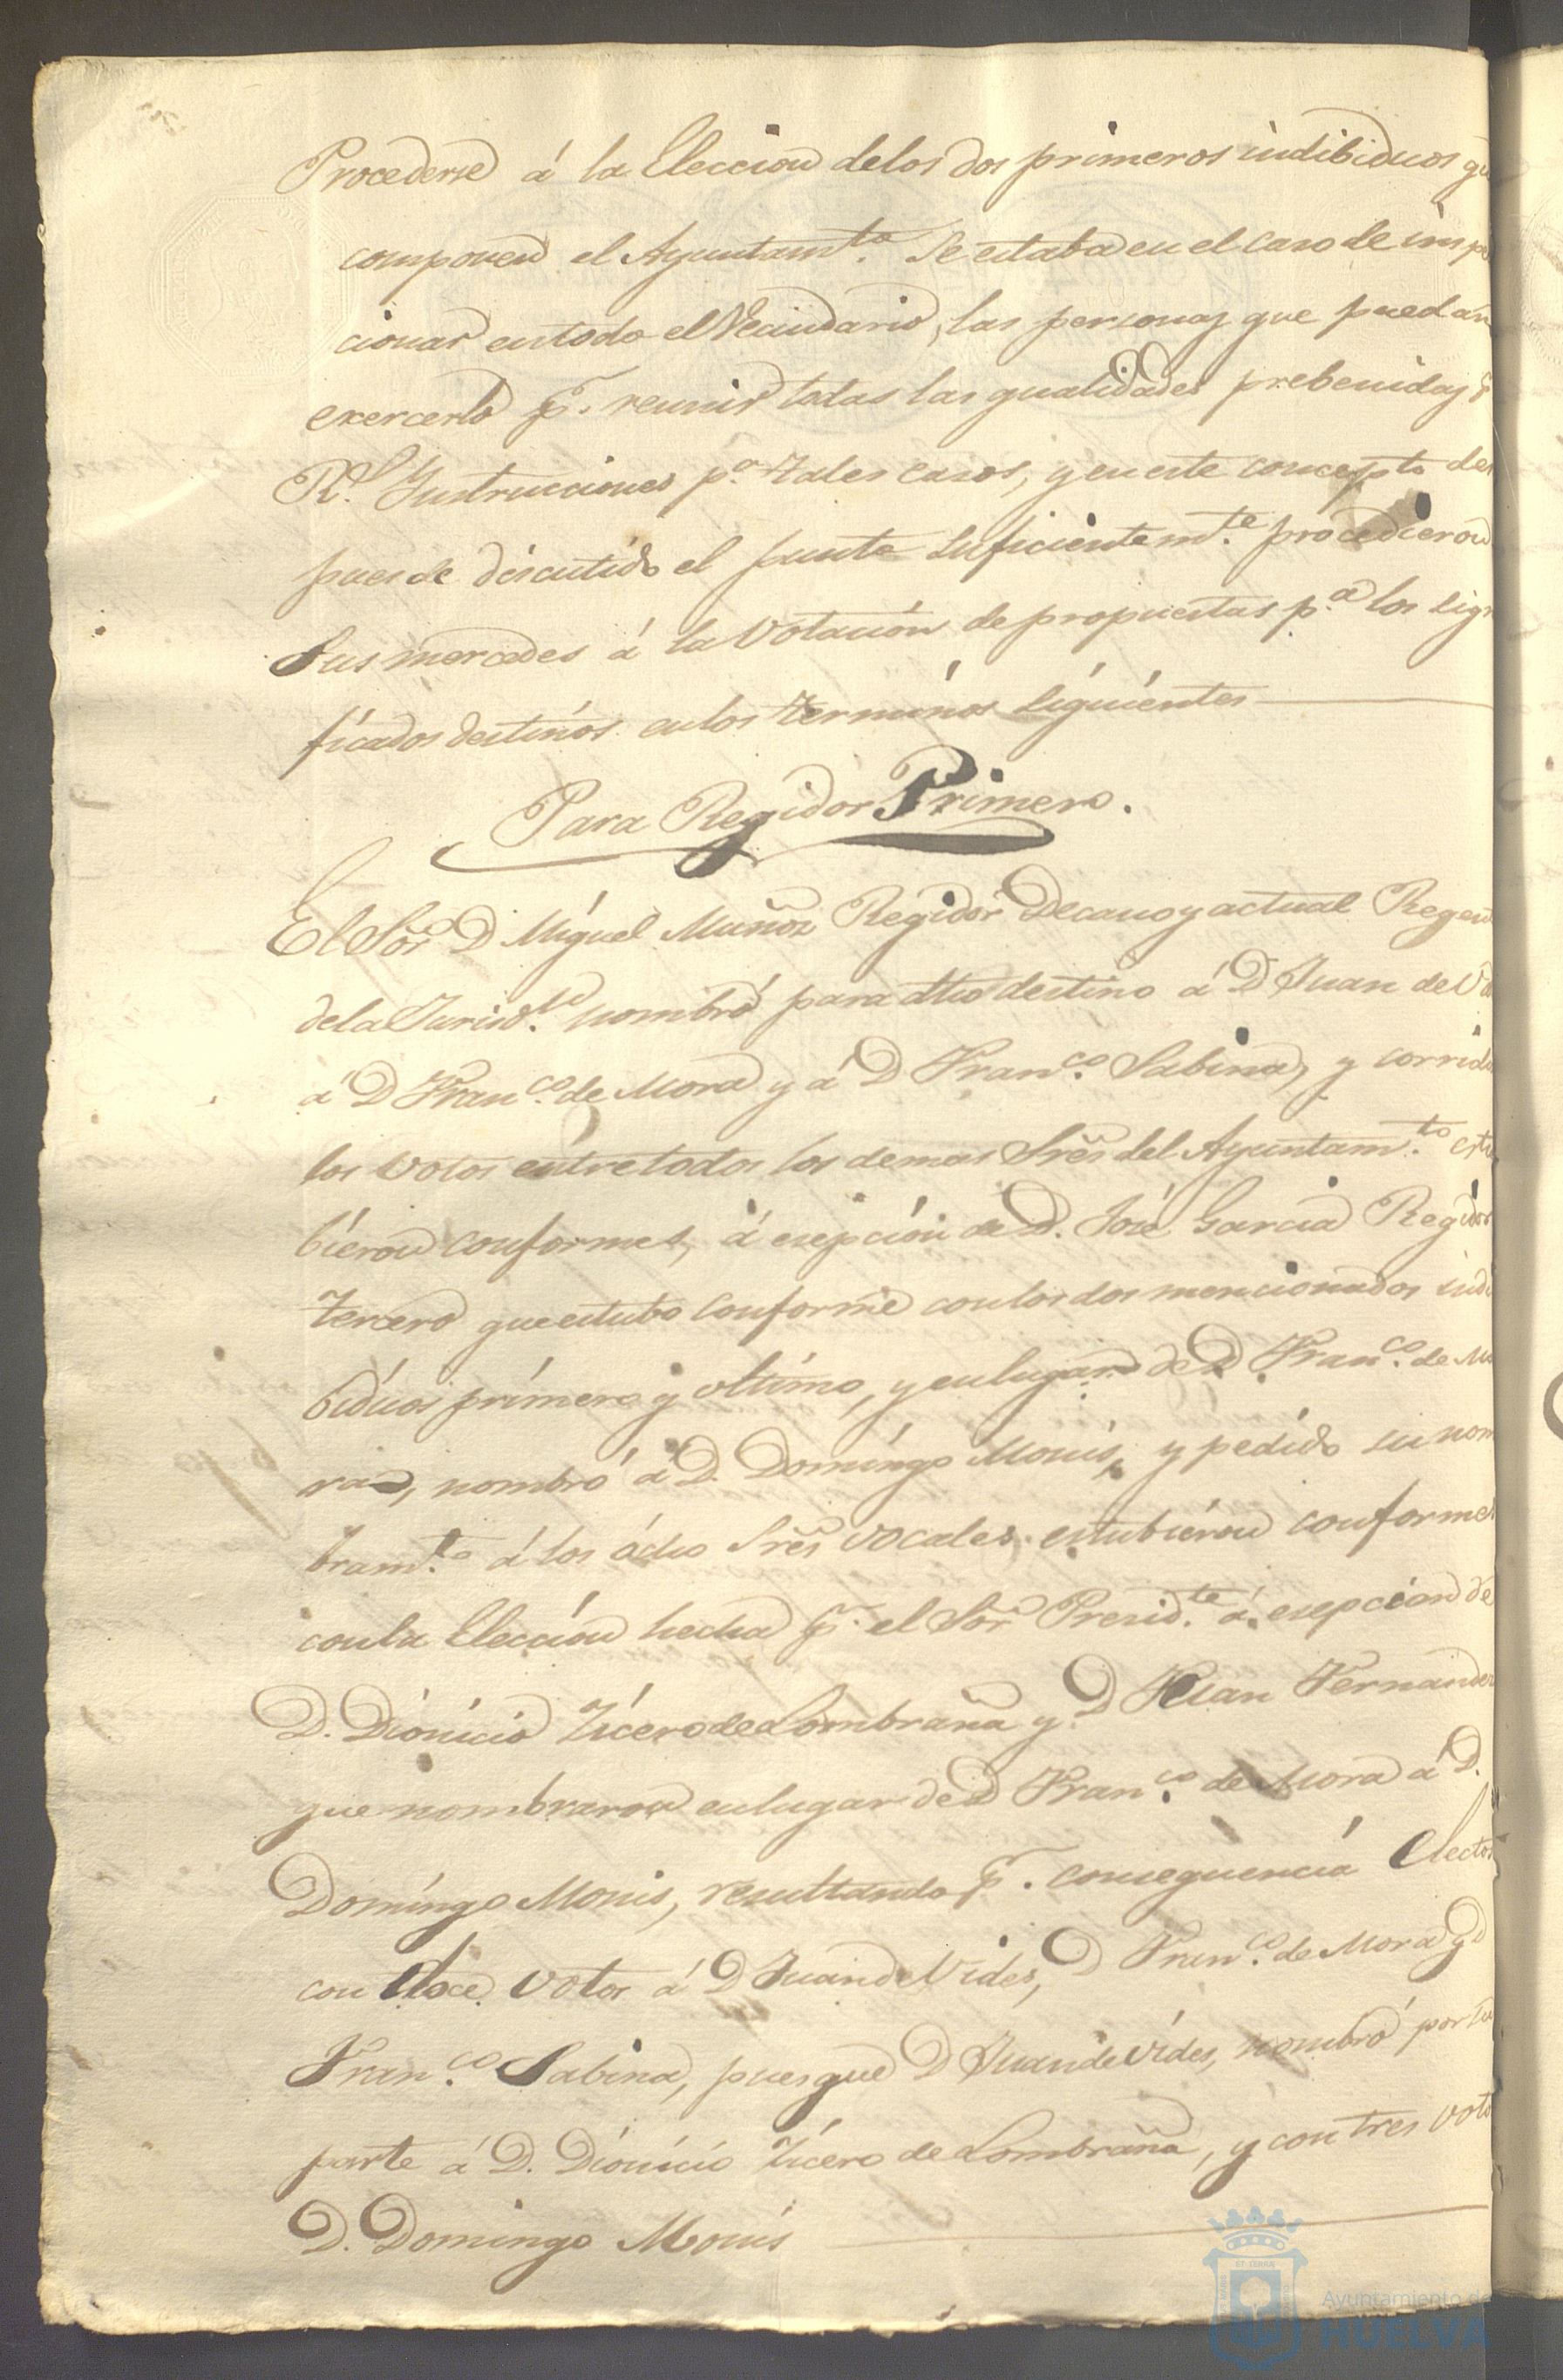 Procederse á la Eleccion delos dos primeros indibiduos qu
componen el Ayuntam.to Se estaba en el caso de impo
cionar entodo el Vecindario, las personas que puedan
exercerlo p.r reunir todas las qualidades prebenidas
R.s Ynstrucciones p.a tales casos, y en este concepto des
pues de discutido el punto suficientem.te procedieron
Sus mercedes á la Votacion de propuestas p.a los sign
ficados destinos en los terminos siguientes
Para Regidor Primero.
El Sor D Miguel Muñoz Regidor Decano y actual Regen
dela Jurisd.n nombró para dho destino á D Juan de Vi
á D Fran.co de Mora y á D Fran.co Sabina, y corrido
los votos entre todos los demas Sres del Ayuntam.to estu
bieron conformes, á esepcion de D. José Garcia Regidor
Tercero que estubo conforme con los dos mencionados indi
biduos primero y ultimo, y en lugar de D Fran.co de Mo
ra, nombró á D. Domingo Monis, y pedido su nom
bram.to á los ócho Sres vocales estubieron conformes
con la Eleccion hecha p.r el Sor Presid.te á esepcion de
D. Dionicio Tícero de Lombraña y D Juan Fernandez
que nombraron en lugar de D Fran.co de Mora á D.
Domingo Monis, resultando p.r conseguencia Electos
con doce votos á D Juan de Vides, D Fran.co de Mora y D
Fran.co Sabina, pues que D Juan de Vides, nombró por su
parte á D. Dionicio Tícero de Lombraña, y con tres voto
D. Domingo Monis
Ayuntamiento de
HUELVA